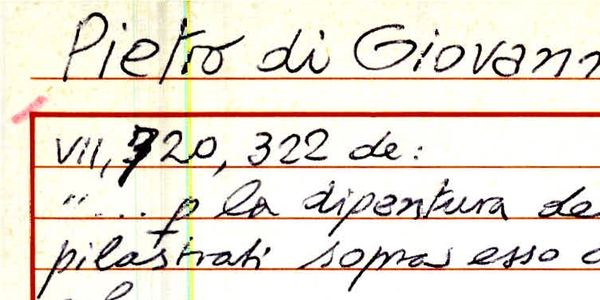 Pietro di Giovann
VII, 320, 322 de:
"... p la dipentura de
pilastrati sopras esso